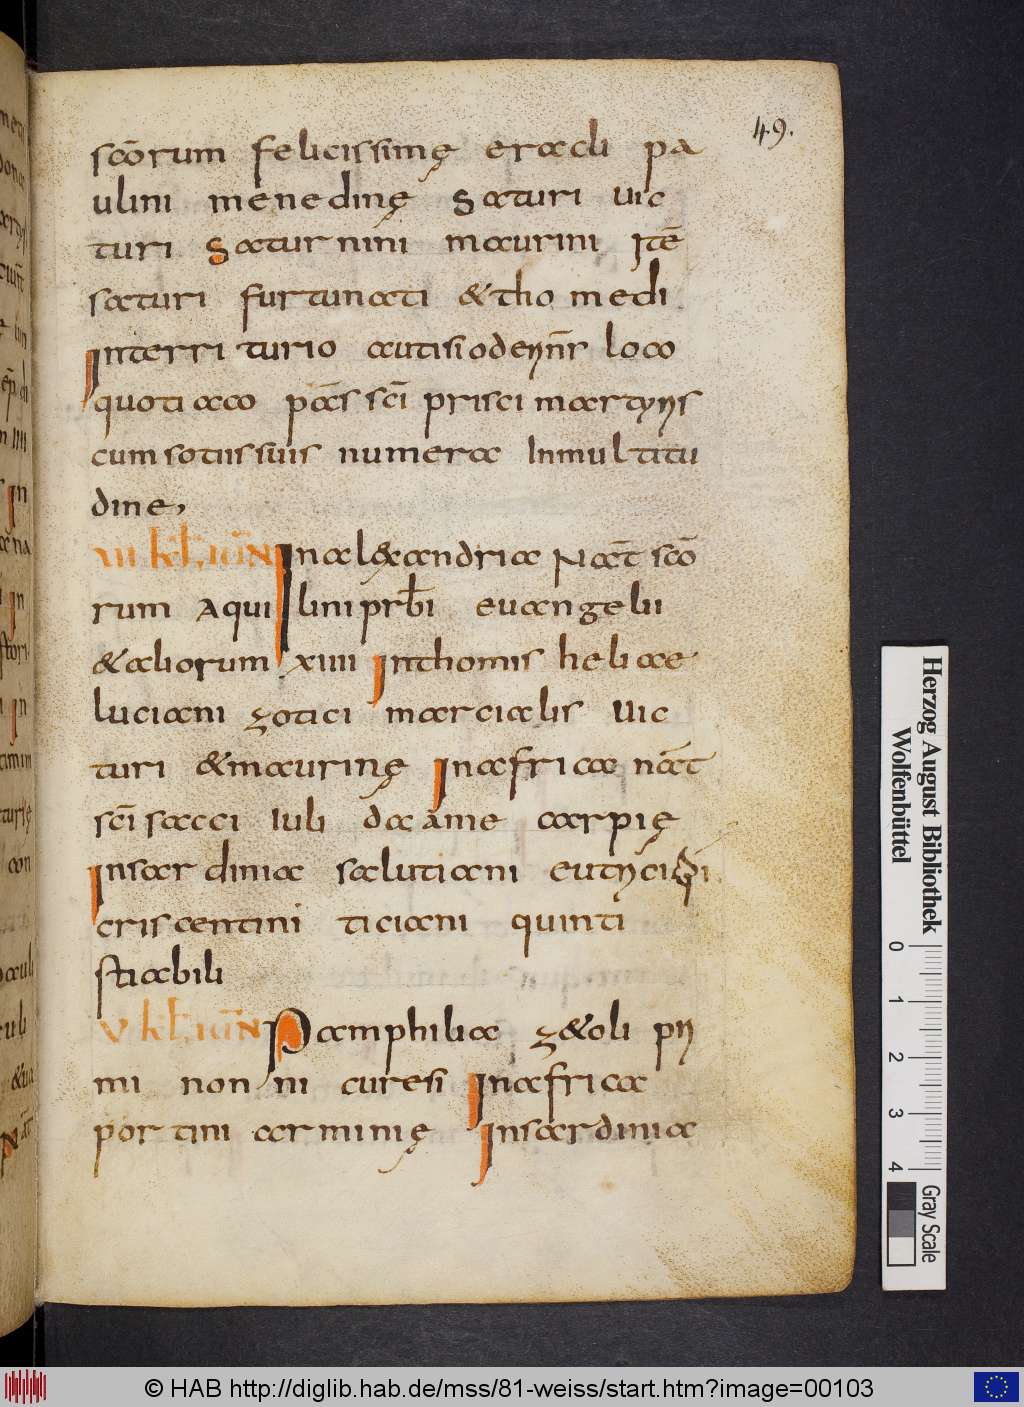 49.
scōrum felicissimę eracli pa
ulini menedinę saturi uic
turi saturnini maurini itē
saturi furtunati &tho medi
interri turio autisiodeynr̄ loco
quotiaco pas̄ scī prisci martyris
cumsotiissuis numera inmultitu
dine,
VII kł iun̄ Inalexandria Nat̄ scō
rum Aquilini prb̄i euangelii
&aliorum xiiii inthomis heliae
luciani gotici marcialis uic
turi &maurinę inafrica nat̄
scī sacci iuli dacianae carpię
insardinia salutiani eutyci
criscentini ticiani quinti
stiabili
V kł iun̄ Pamphilia z&oli pri
mi nonni curesi inafrica
portini arminię insardinia
Herzog August Bibliothek
Wolfenbüttel
0 1 2 3 4
Gray Scale
© HAB http://diglib.hab.de/mss/81-weiss/start.htm?image=00103